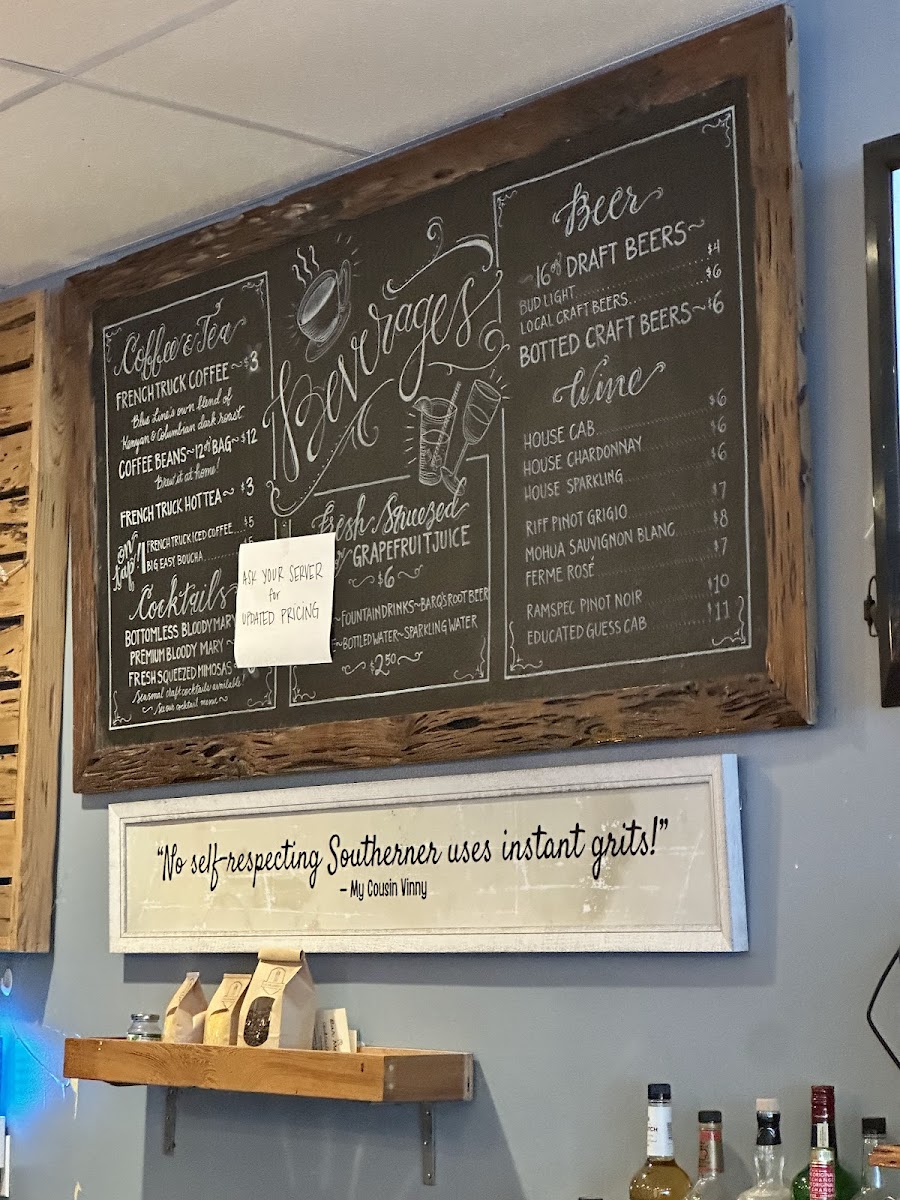 Coffee & Tea
FRENCH TRUCK COFFEE ~ $3
Blue Line's own blend of
Kenyan & Columbian dark roast
COFFEE BEANS ~ 12oz BAG ~ $12
Brew it at home!
FRENCH TRUCK HOT TEA ~ $3
on tap!
FRENCH TRUCK ICED COFFEE.....$5
BIG EASY BOUCHA..........5
Cocktails
BOTTOMLESS BLOODY MARY
PREMIUM BLOODY MARY ~
FRESH SQUEEZED MIMOSAS
Seasonal craft cocktails available!
~ See our cocktail menu ~
Beverages
ASK YOUR SERVER
for
UPDATED PRICING
Fresh Squeezed
GRAPEFRUIT JUICE
~ $6 ~
~FOUNTAIN DRINKS~BARQ'S ROOT BEER
~BOTTLED WATER~SPARKLING WATER
~ $2.50 ~
Beer
~16oz DRAFT BEERS~
BUD LIGHT..........$4
LOCAL CRAFT BEERS..........$6
BOTTED CRAFT BEERS~$6
Wine
HOUSE CAB..........$6
HOUSE CHARDONNAY..........$6
HOUSE SPARKLING..........$6
RIFF PINOT GRIGIO..........$7
MOHUA SAUVIGNON BLANC..........$8
FERME ROSÉ..........$7
RAMSPEC PINOT NOIR..........$10
EDUCATED GUESS CAB..........$11
“No self-respecting Southerner uses instant grits!”
– My Cousin Vinny